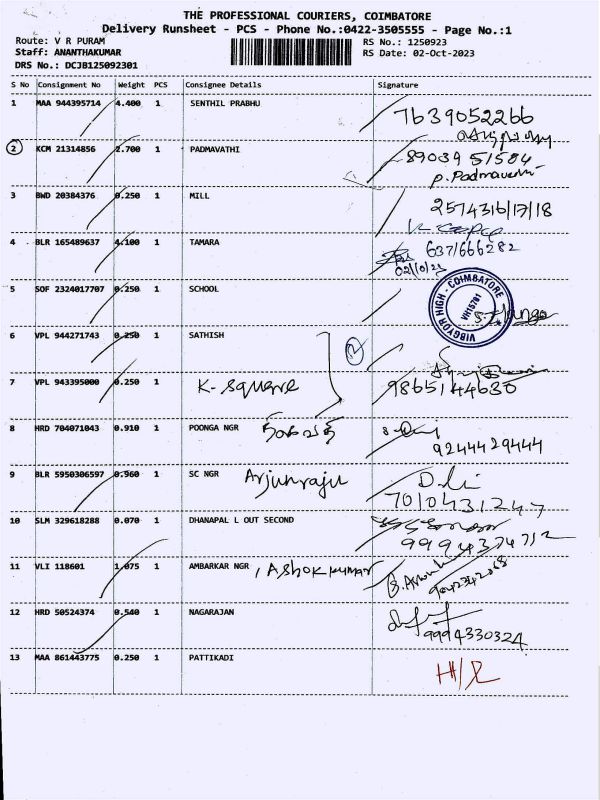 THE PROFESSIONAL COURIERS, COIMBATORE
Delivery Runsheet - PCS - Phone No.:0422-3505555 - Page No.:1
Route: V R PURAM
RS No.: 1250923
Staff: ANANTHAKUMAR
RS Date: 02-Oct-2023
DRS No.: DCJB125092301
S No Consignment No Weight PCS Consignee Details Signature
1 MAA 944395714 4.400 1 SENTHIL PRABHU 7639052266
2 KCM 21314856 2.700 1 PADMAVATHI 89039 51504
P. Padmavathi
3 BWD 20384376 0.250 1 MILL 2574316/17/18
4 BLR 165489637 4.100 1 TAMARA 637/666282
02/10/23
5 SOF 2324017707 0.250 1 SCHOOL
VIBGYOR HIGH - COIMBATORE
VH15781
6 VPL 944271743 0.250 1 SATHISH
2
7 VPL 943395000 0.250 1 K-square 9865144630
8 HRD 704071043 0.910 1 POONGA NGR 9244429444
9 BLR 5950306597 0.960 1 SC NGR Arjunraju 7010431247
10 SLM 329618288 0.070 1 DHANAPAL L OUT SECOND 9994374712
11 VLI 118601 1.075 1 AMBARKAR NGR , Ashok kumar 9042342068
12 HRD 50524374 0.540 1 NAGARAJAN 9994330324
13 MAA 861443775 0.250 1 PATTIKADI H/R